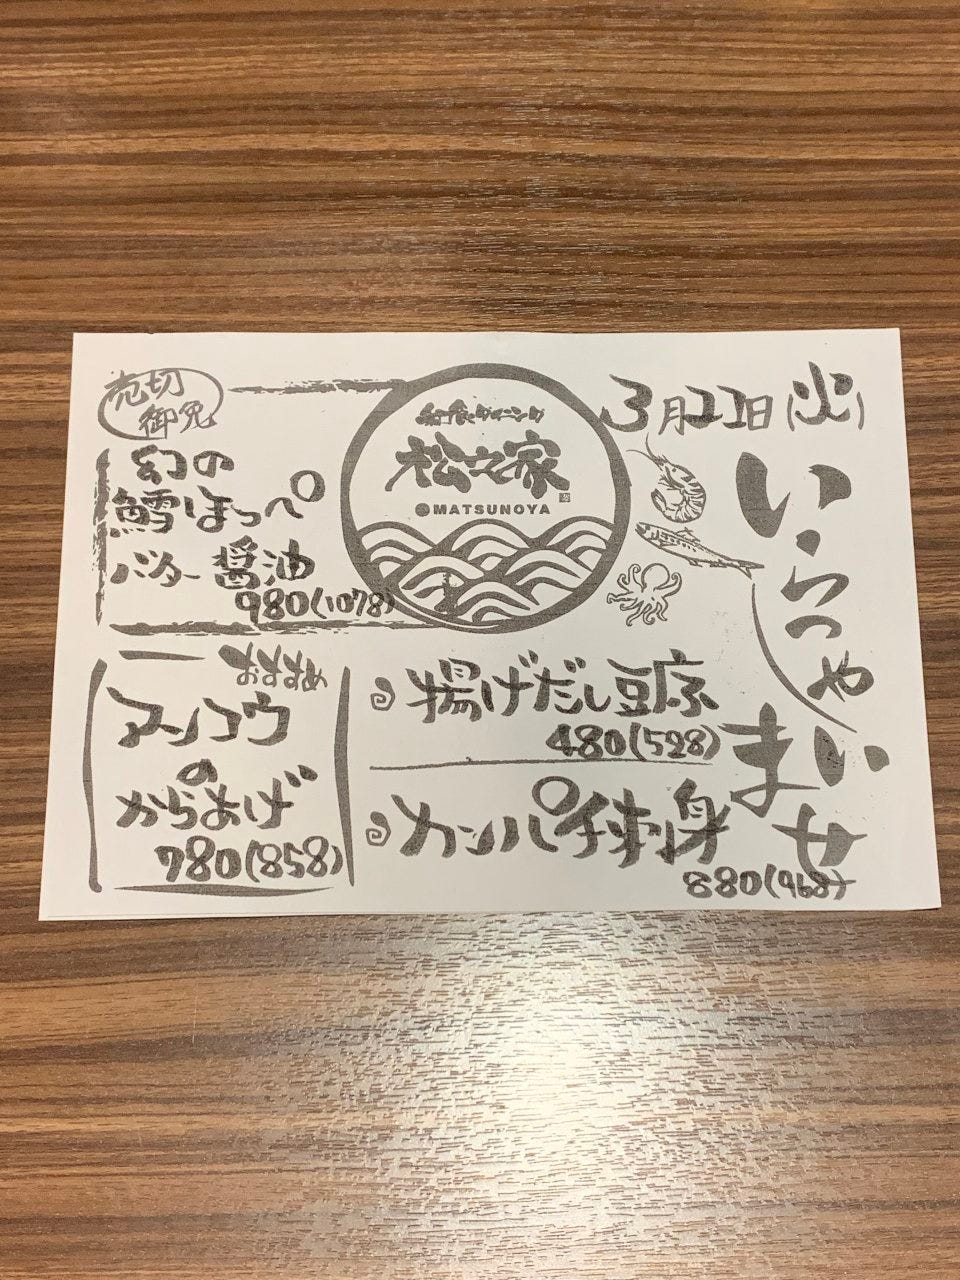 3月22日(火)
いらっしゃいませ
ダイニング
松之家
MATSUNOYA
売切
御免
幻の
鱈ほっぺ
バター醤油
980(1078)
おすすめ
アンコウ
の
からあげ
780(858)
揚げだし豆腐
480(528)
カンパチ刺身
880(968)